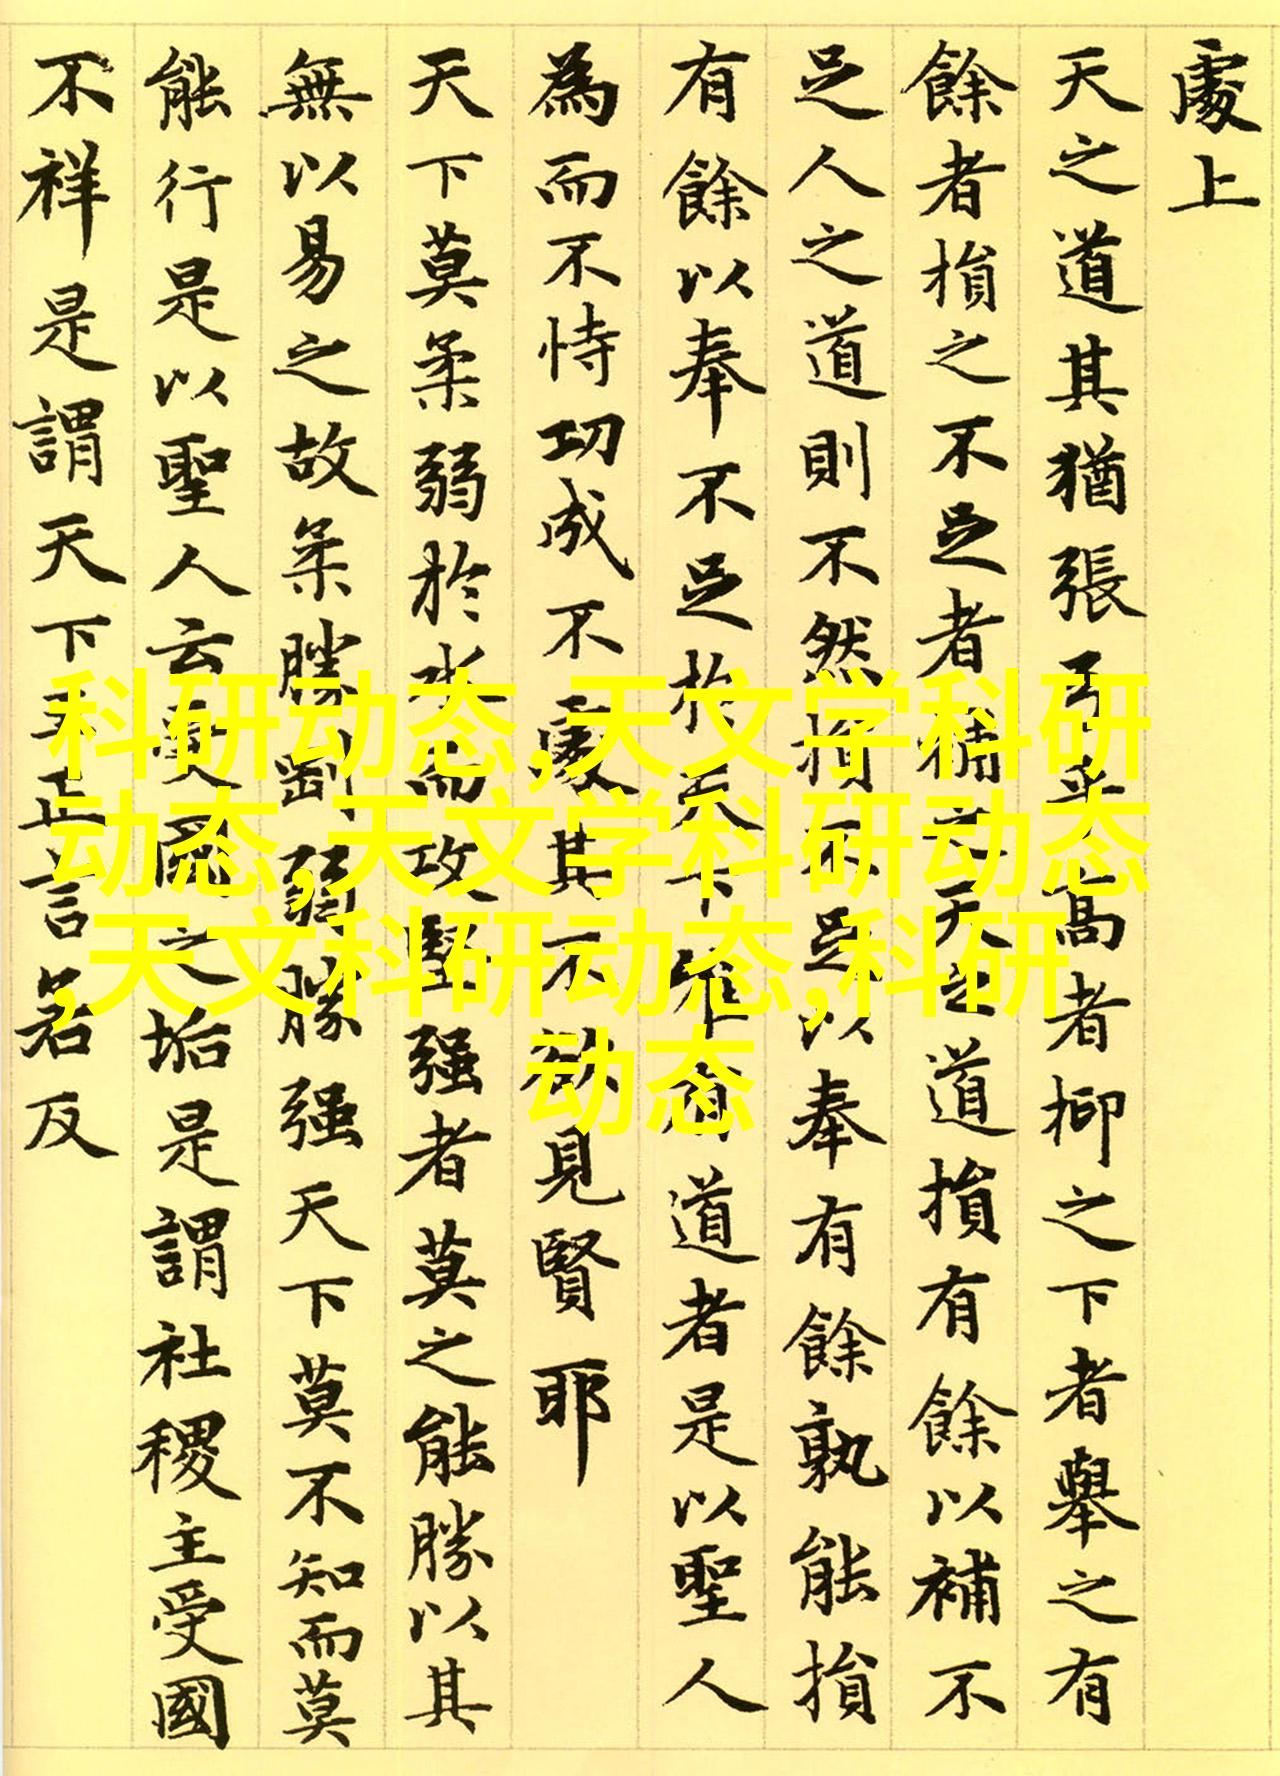 處上
天之道其猶張弓乎高者抑之下者舉之有
餘者損之不足者補之天之道損有餘以補不
足人之道則不然損不足以奉有餘孰能損
有餘以奉不足於天下唯有道者是以聖人
為而不恃功成不處其不欲見賢耶
天下莫柔弱於水而攻堅强者莫之能勝以其
無以易之故柔勝剛弱勝强天下莫不知而莫
能行是以聖人云受國之垢是謂社稷主受國
不祥是謂天下王正言若反
科研动态,天文学科研
动态,天文学科研动态
,天文科研动态,科研
动态